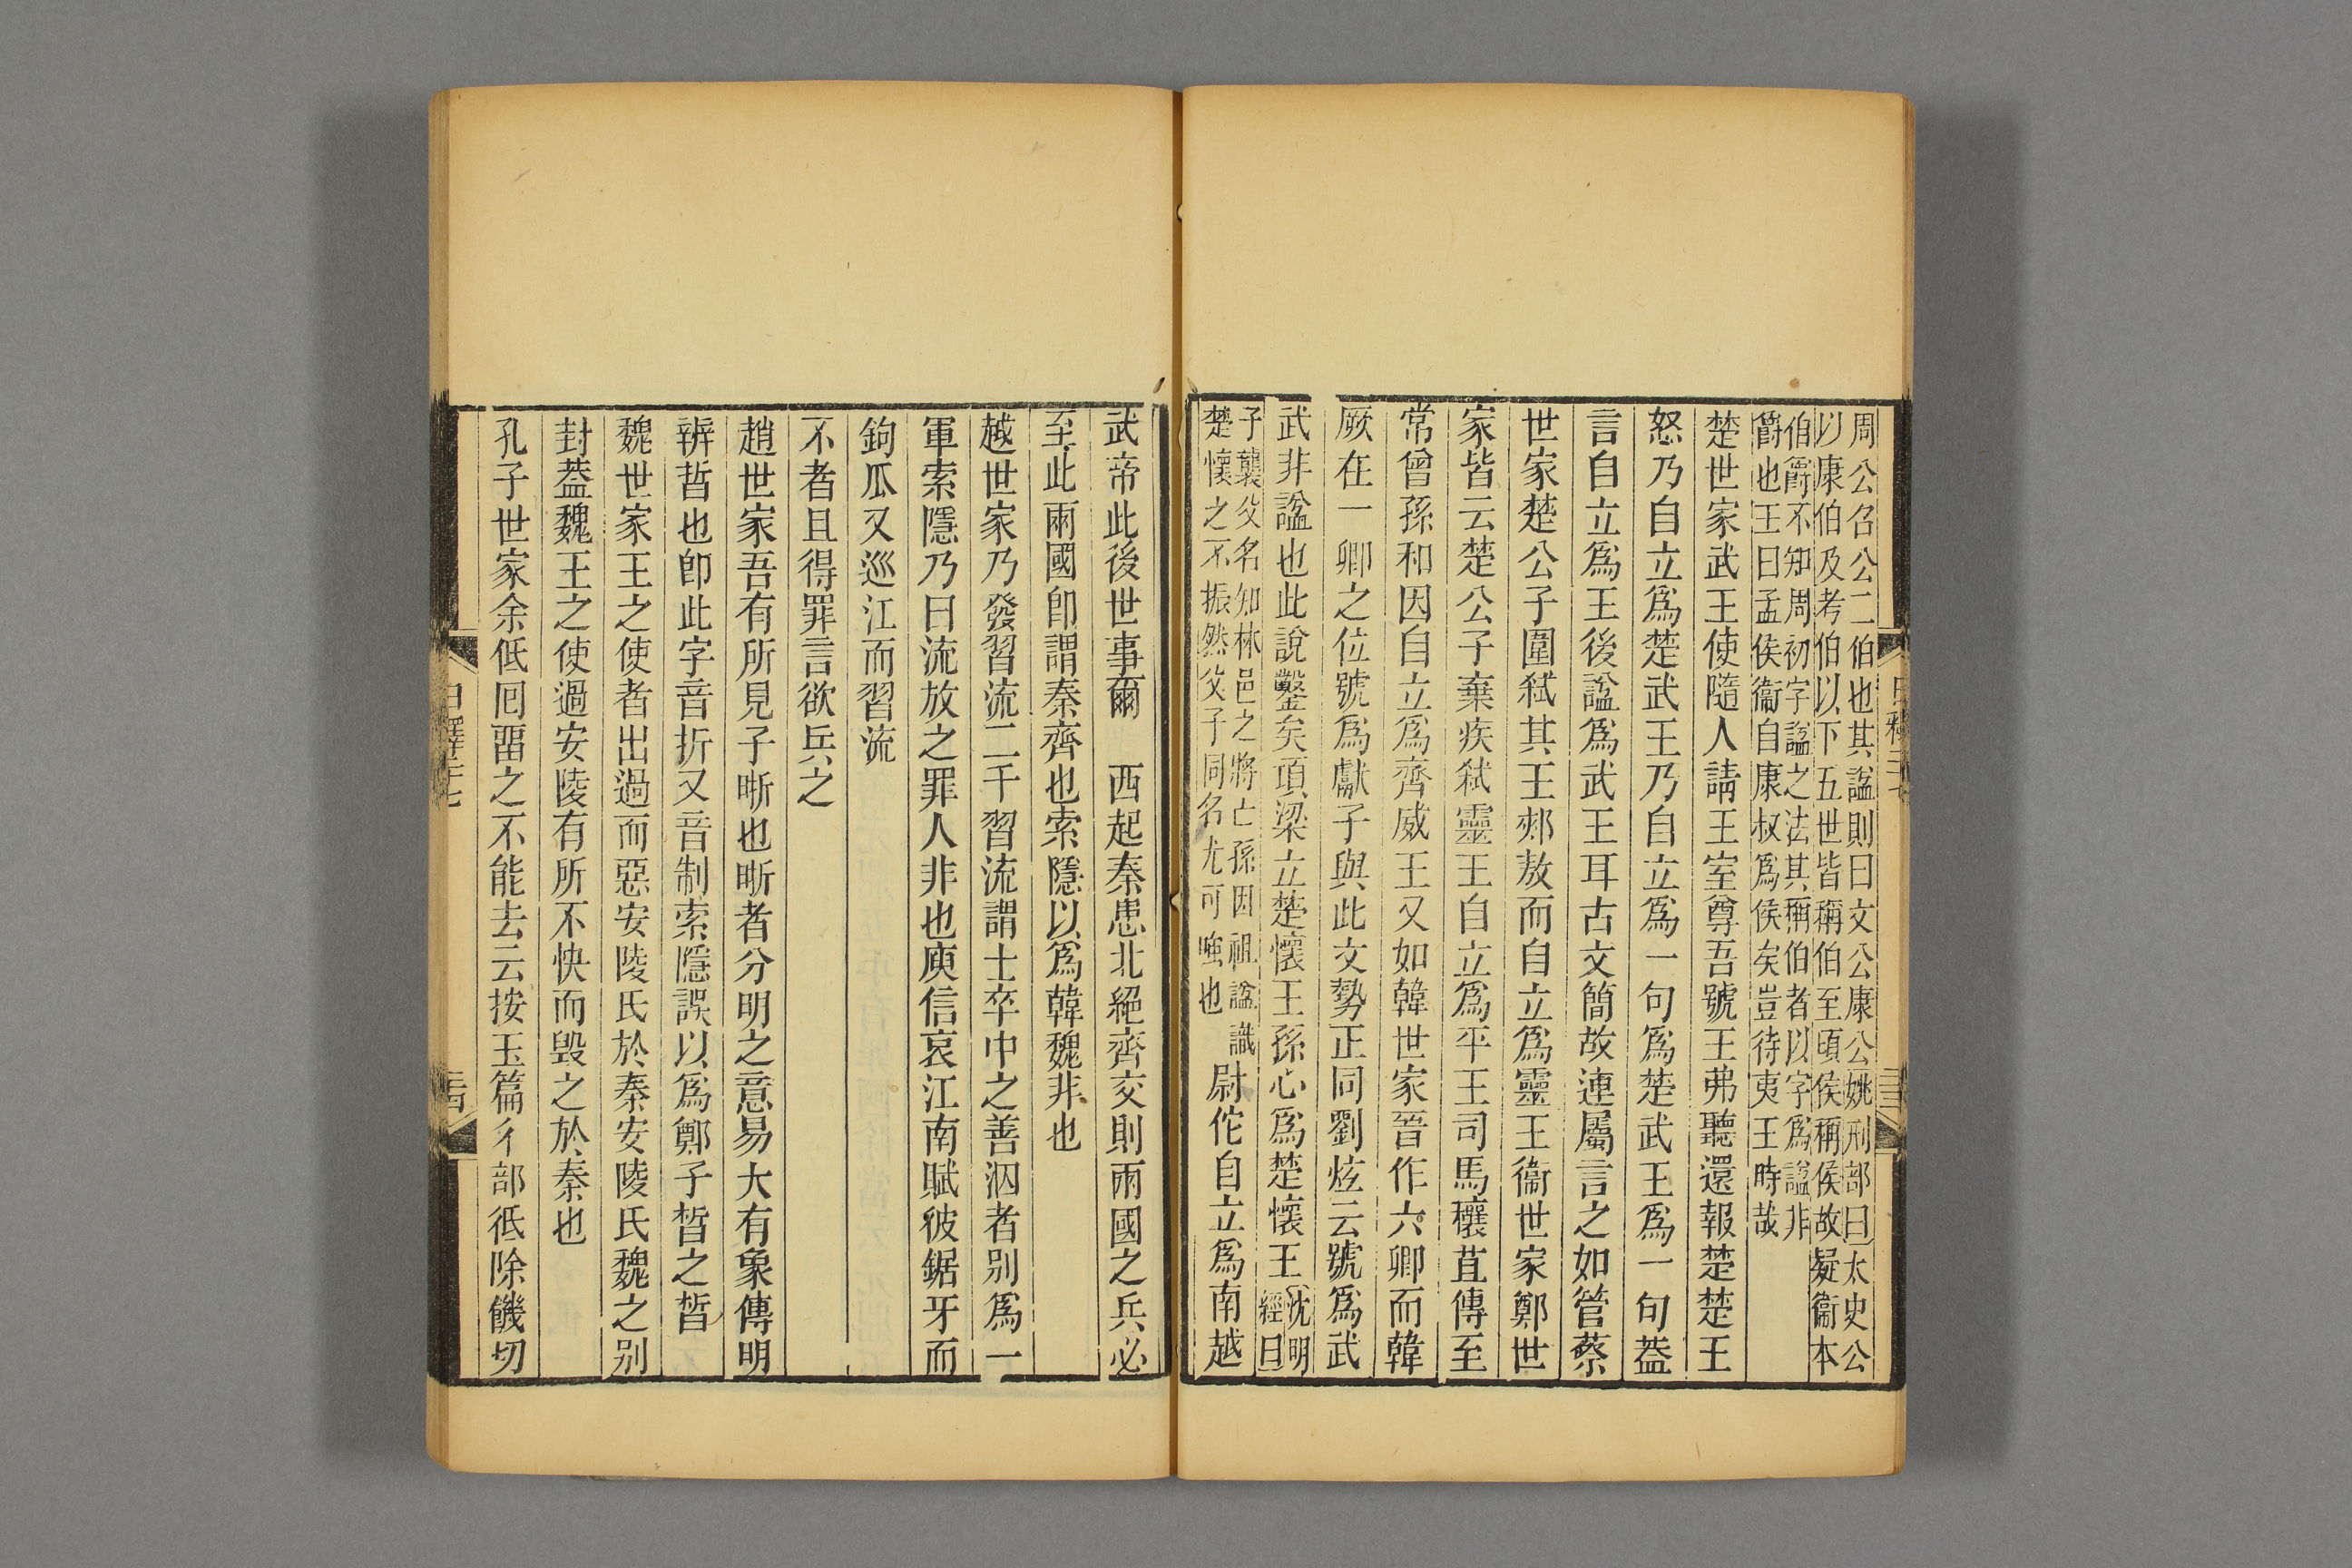 周公召公二伯也其諡則曰文公康公姚刑部曰太史公
以康伯及考伯以下五世皆稱伯至頃侯稱侯故疑衞本
伯爵不知周初字諡之法其稱伯者以字爲諡非
爵也王曰孟侯衞自康叔爲侯矣豈待夷王時哉
楚世家武王使隨人請王室尊吾號王弗聽還報楚楚王
怒乃自立爲楚武王乃自立爲一句爲楚武王爲一句葢
言自立爲王後諡爲武王耳古文簡故連屬言之如管蔡
世家楚公子圍弑其王郟敖而自立爲靈王衞世家鄭世
家皆云楚公子棄疾弑靈王自立爲平王司馬穰苴傳至
常曾孫和因自立爲齊威王又如韓世家晉作六卿而韓
厥在一卿之位號爲獻子與此文勢正同劉炫云號爲武
武非諡也此說鑿矣項梁立楚懷王孫心爲楚懷王沈明
經曰
子襲父名知林邑之將亡孫因祖諡識
楚懷之不振然父子同名尤可嗤也
尉佗自立爲南越
武帝此後世事爾　西起秦患北絕齊交則兩國之兵必
至此兩國卽謂秦齊也索隱以爲韓魏非也
越世家乃發習流二千習流謂士卒中之善泅者别爲一
軍索隱乃曰流放之罪人非也庾信哀江南賦彼鋸牙而
鉤瓜又巡江而習流
不者且得罪言欲兵之
趙世家吾有所見子晣也晣者分明之意易大有象傳明
辨晢也卽此字音折又音制索隱誤以爲鄭子晳之晳
魏世家王之使者出過而惡安陵氏於秦安陵氏魏之别
封葢魏王之使過安陵有所不快而毀之於秦也
孔子世家余低囘畱之不能去云按玉篇彳部彽除饑切